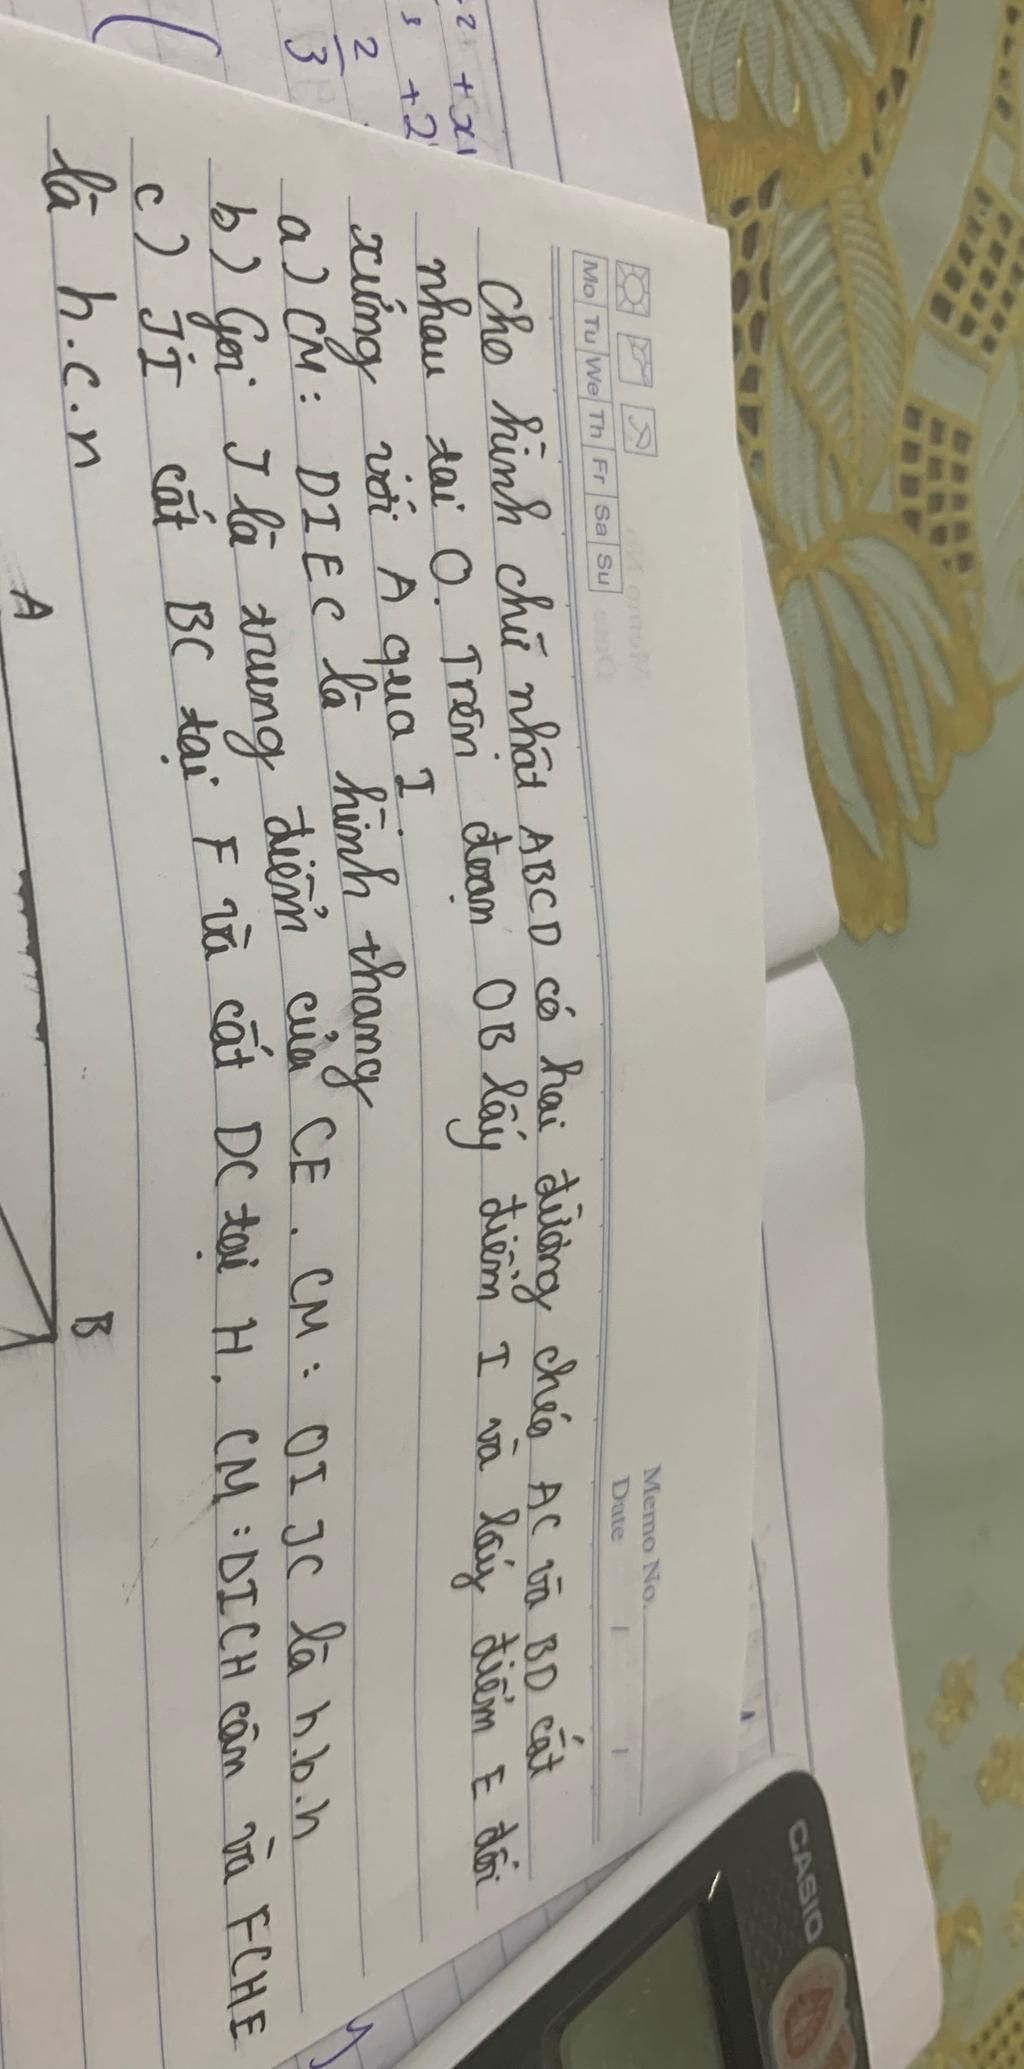 Memo No.
Mo Tu We Th Fr Sa Su
Date / /
Cho hình chữ nhật ABCD có hai đường chéo AC và BD cắt
nhau tại O. Trên đoạn OB lấy điểm I và lấy điểm E đối
xứng với A qua I
a) CM: DIEC là hình thang
b) Gọi J là trung điểm của CE. CM: OIJC là h.b.h
c) JI cắt BC tại F và cắt DC tại H. CM: DICH cân và FCHE
là h.c.n
A
B
2
3
+2
CASIO